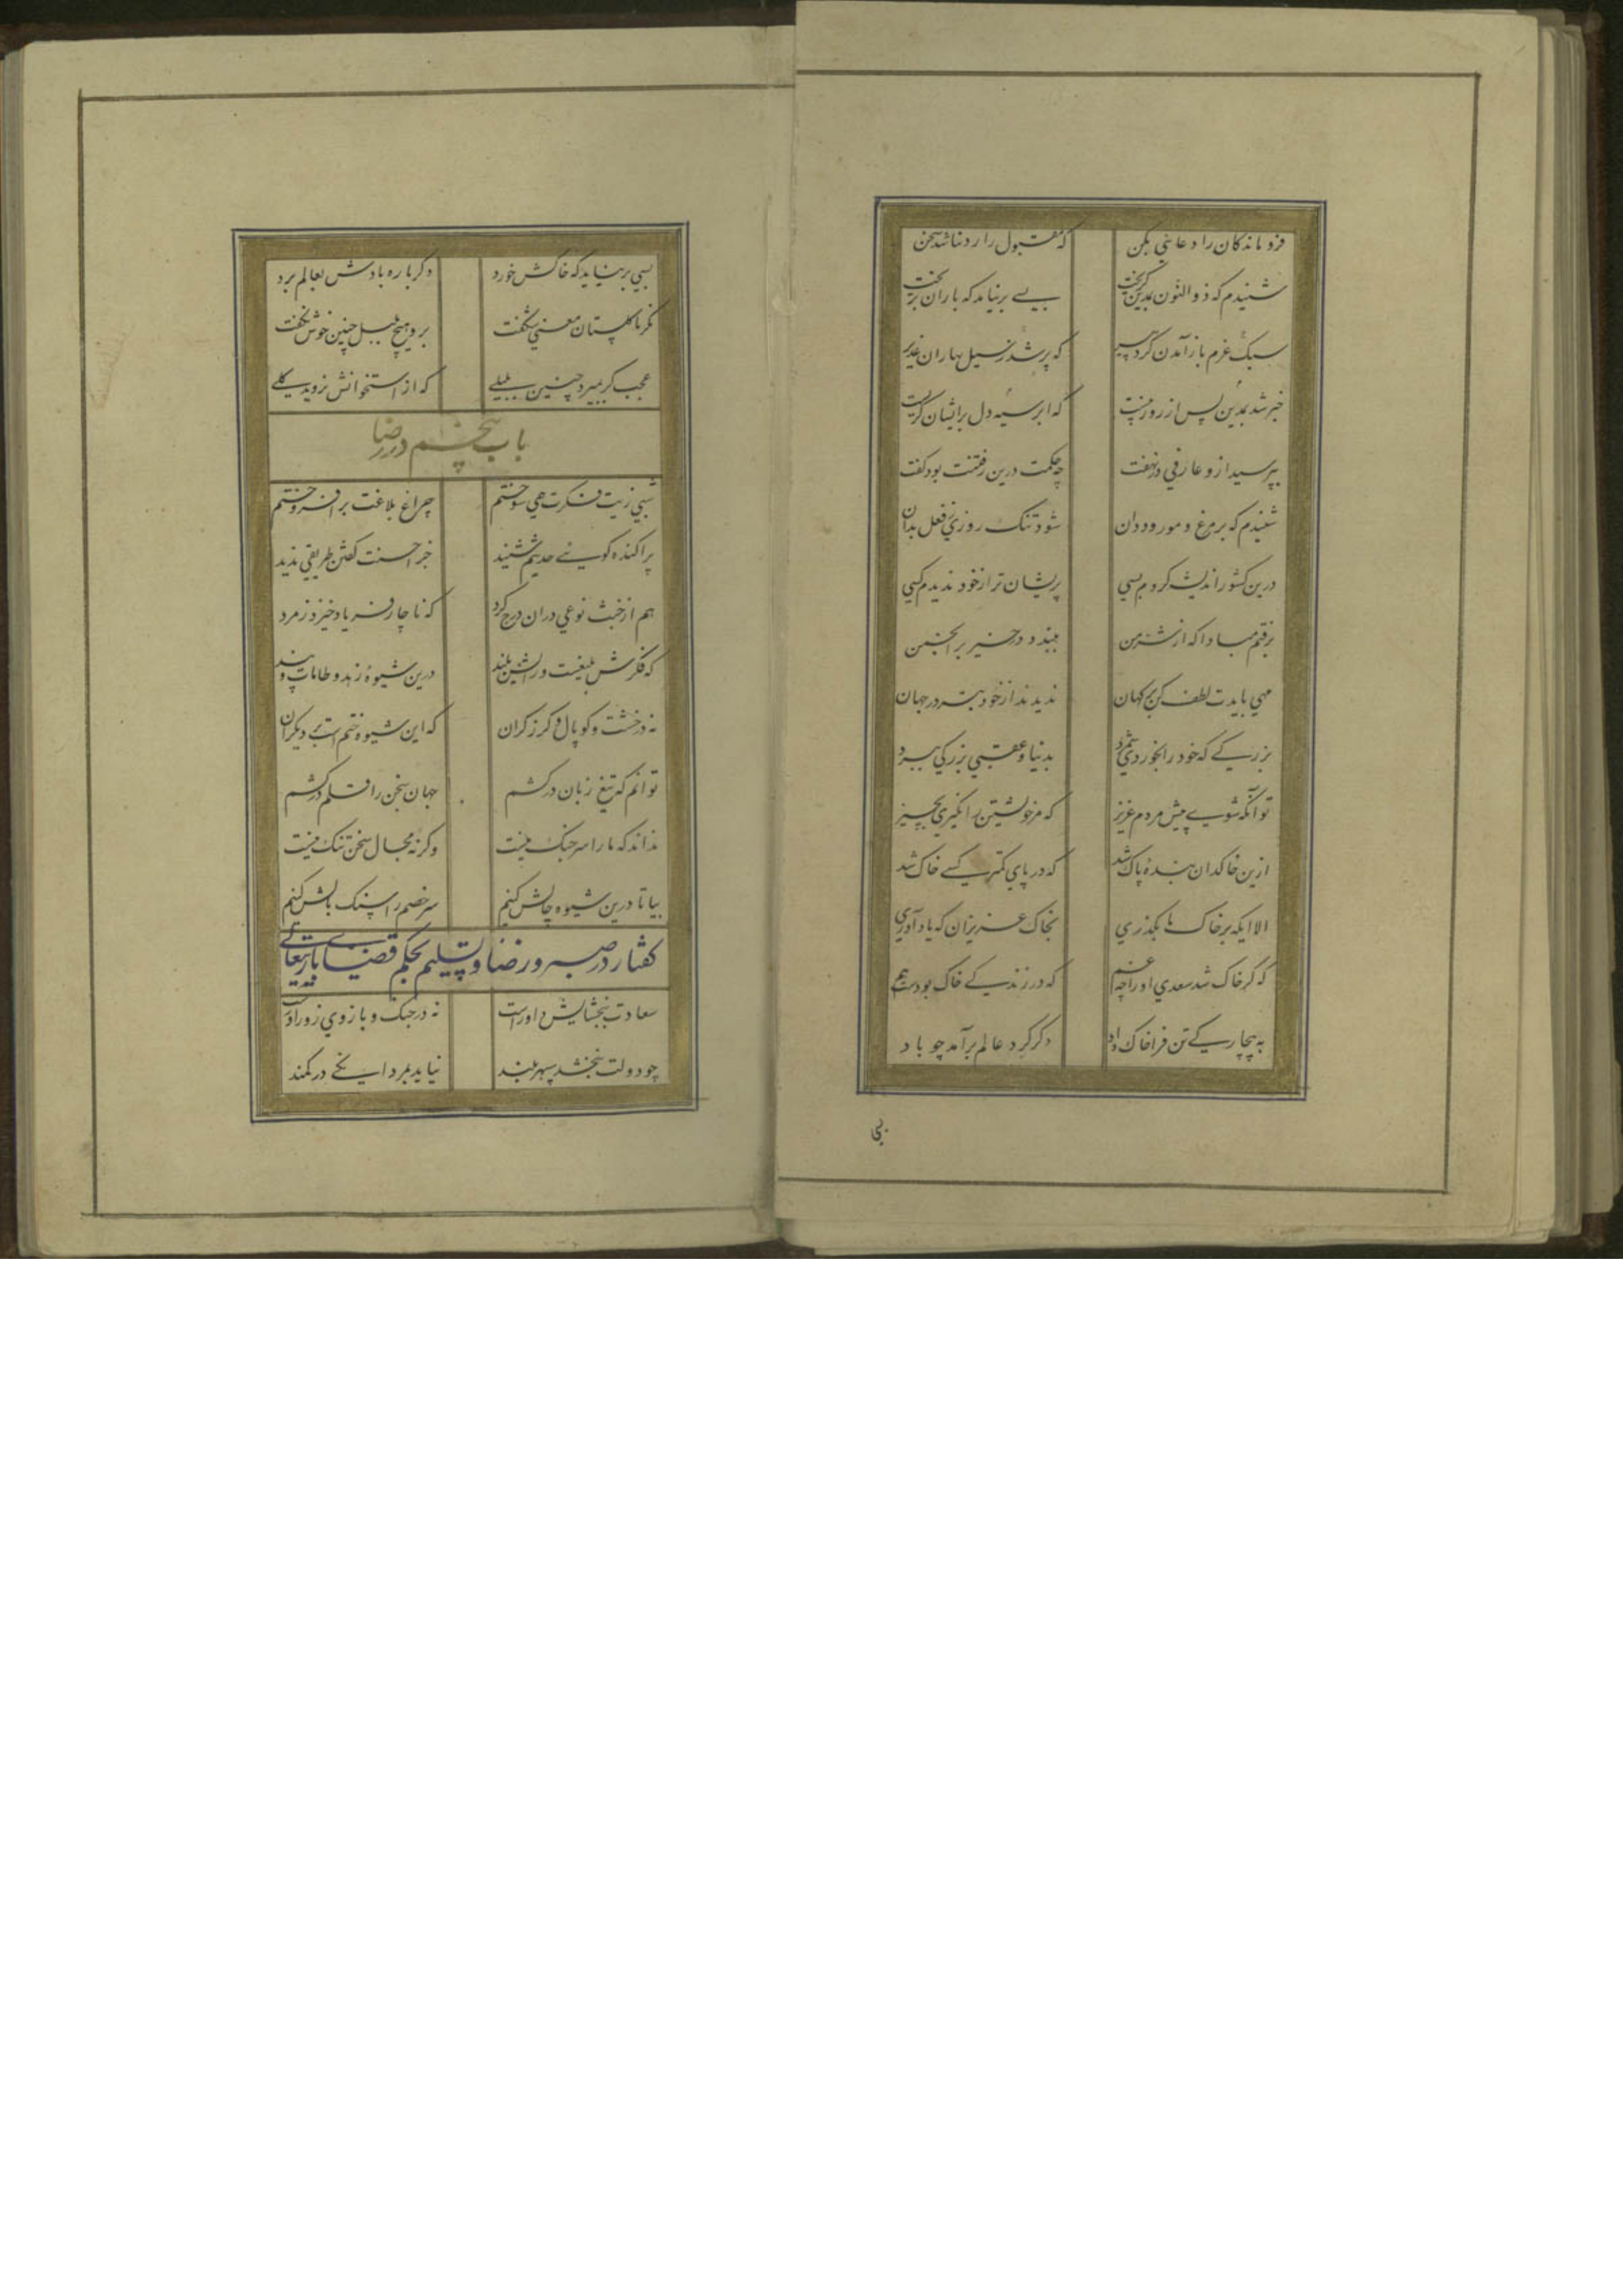 فروماندگان را دعایی بکن که مقبول را رد نباشد سخن
شنیدم که ذوالنون بمدین گریخت بسی برنیامد که باران بریخت
سبک عزم باز آمدن کرد پیر که پر شد ز سیل بهاران غدیر
خبر شد بمدین پس از روز بیست که ابر سیه دل بر ایشان گریست
بپرسید ازو عارفی در نهفت چه حکمت درین رفتنت بود گفت
شنیدم که بر مرغ و مور و ددان شود تنگ روزی ز فعل بدان
درین کشور اندیشه کردم بسی پریشان تر از خود ندیدم کسی
برفتم مبادا که از شر من ببندد در خیر بر انجمن
مهی بایدت لطف کن بر کهان ندیدند از خود بتر در جهان
بزرگی که خود را بخوردی شمرد بدنیا و عقبی بزرگی ببرد
تو آنگه شوی پیش مردم عزیز که مر خویشتن را نگیری بچیز
ازین خاکدان بنده پاک شد که در پای کمتر کسی خاک شد
الا ایکه بر خاک ما بگذری بخاک عزیزان که یاد آوری
که گر خاک شد سعدی او را چه غم که در زندگی خاک بودست هم
به بیچارگی تن فرا خاک داد دگر گرد عالم برآمد چو باد
بی
بسی برنیاید که خاکش خورد دگر باره بادش بعالم برد
نگر تا گلستان معنی شگفت برو هیچ بلبل چنین خوش نگفت
عجب گر بمیرد چنین بلبلی که از استخوانش نروید گلی
باب پنجم در رضا
شبی زیت فکرت همی سوختم چراغ بلاغت برافروختم
پراکنده گویی حدیثم شنید جز احسنت گفتن طریقی ندید
هم از خبث نوعی دران درج کرد که ناچار فریاد خیزد ز مرد
که فکرش بلیغست و رایش بلند درین شیوهٔ زهد و طامات و پند
نه در خشت و کوپال و گرز گران که این شیوه ختم است بر دیگران
توانم که تیغ زبان درکشم جهان سخن را قلم درکشم
نداند که ما را سر جنگ نیست وگرنه مجال سخن تنگ نیست
بیا تا درین شیوه چالش کنیم سر خصم را سنگ بالش کنیم
گفتار در صبر و رضا و تسلیم بحکم قضای باریتعالی
سعادت ببخشایش داورست نه در جنگ و بازوی زورآورست
چو دولت نبخشد سپهر بلند نیاید بمردانگی در کمند